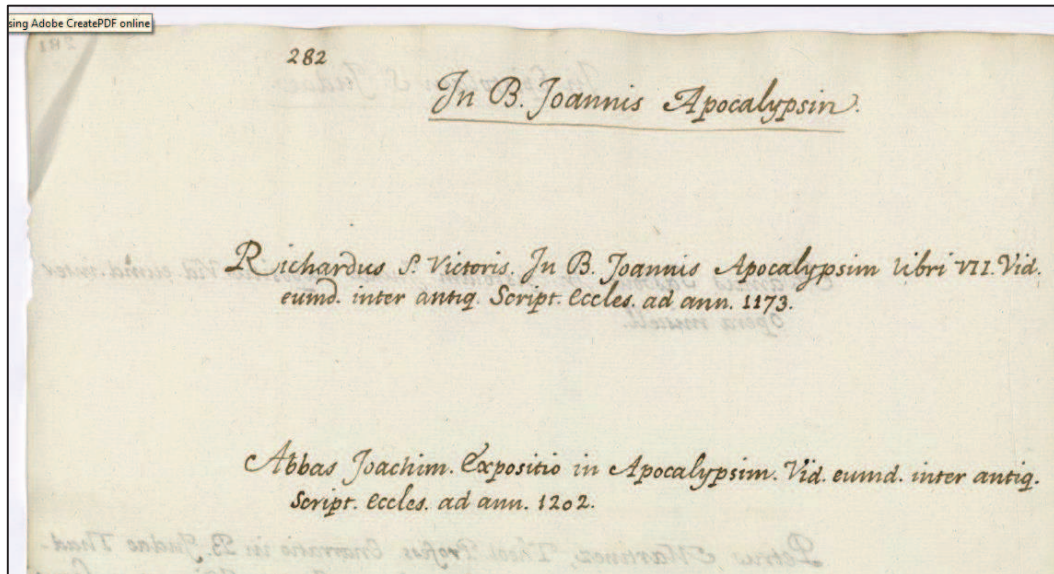 sing Adobe CreatePDF online
282
In B. Joannis Apocalypsin.
Richardus S. Victoris. In B. Joannis Apocalypsim libri VII. Vid.
eumd. inter antiq. Script. Eccles. ad ann. 1173.
Abbas Joachim. Expositio in Apocalypsim. Vid. eumd. inter antiq.
Script. Eccles. ad ann. 1202.